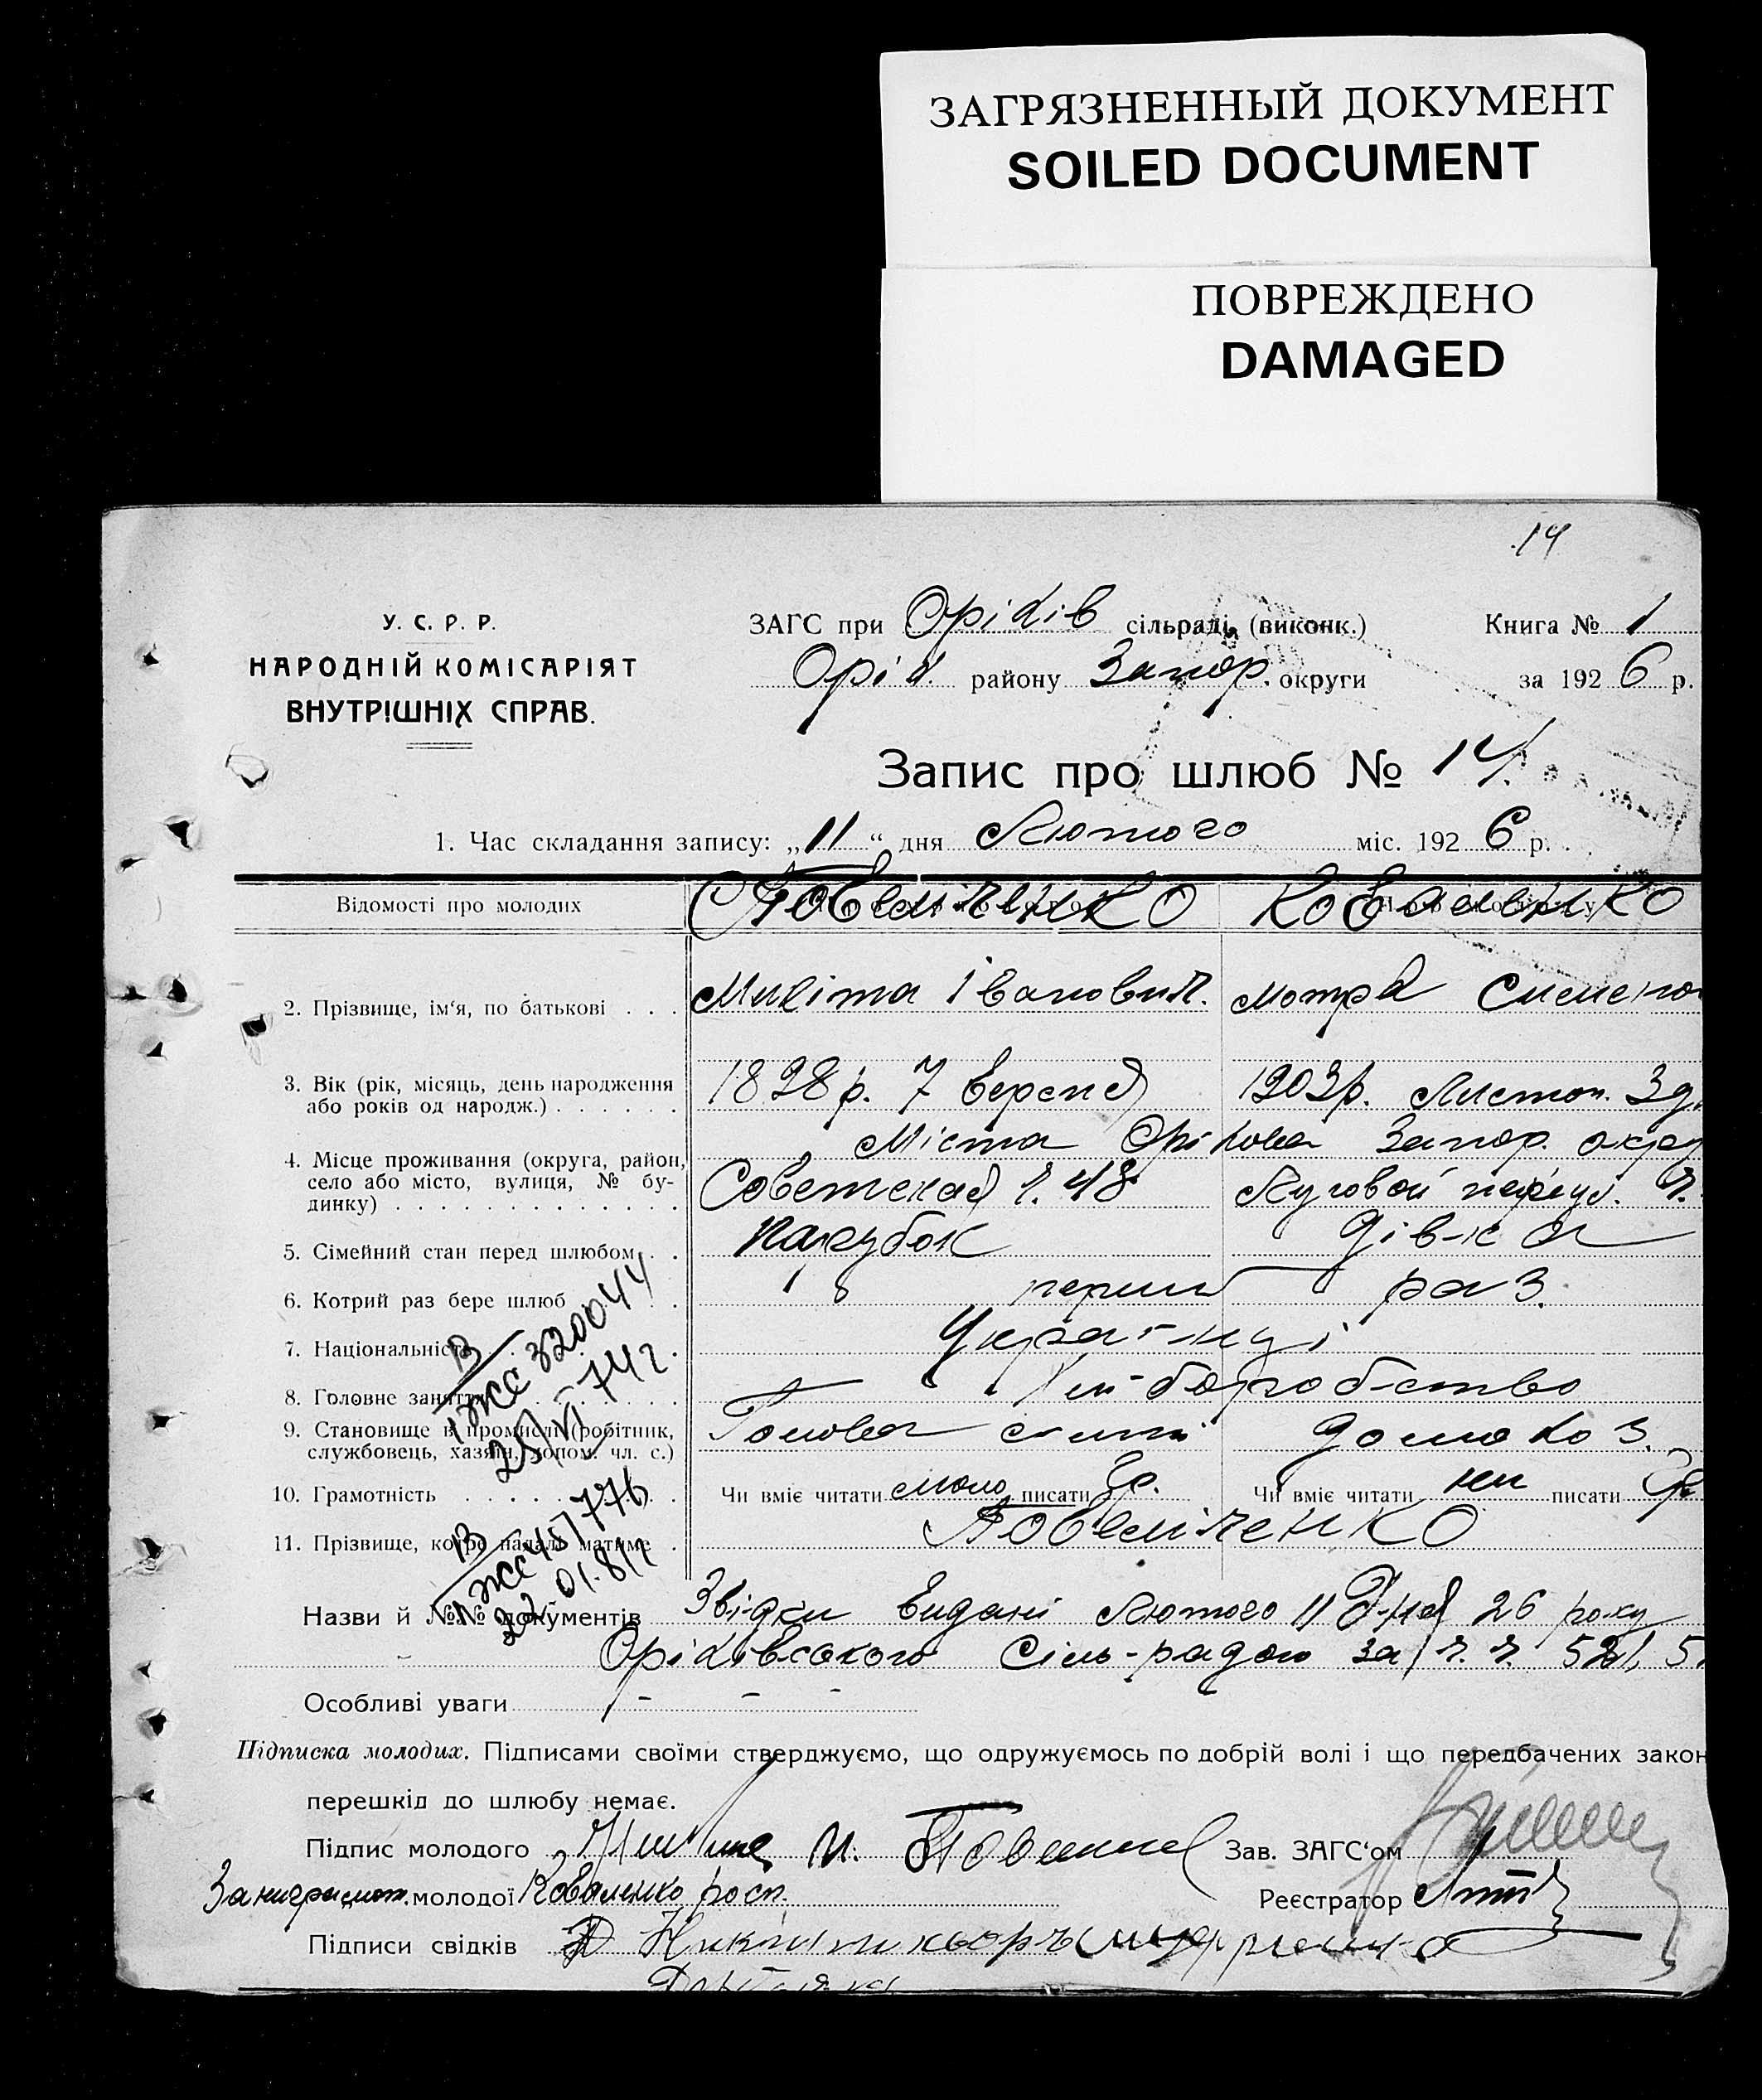 ЗАГРЯЗНЕННЫЙ ДОКУМЕНТ
SOILED DOCUMENT
ПОВРЕЖДЕНО
DAMAGED
14
У. С. Р. Р.
НАРОДНІЙ КОМІСАРІЯТ
ВНУТРІШНІХ СПРАВ.
ЗАГС при Оріхів сільраді, (виконк.)
Оріх. району Запор. округи
Книга № 1
за 1926 р.
Запис про шлюб № 14
1. Час складання запису: „11“ дня Лютого міс. 1926 р.
Відомості про молодих Коваленко
2. Прізвище, ім‘я, по батькові Микіта Іванович. Мотря
3. Вік (рік, місяць, день народження або років од народж.) 7 1903р. Листоп. 3 д.
4. Місце проживання (округа, район, село або місто, вулиця, № будинку) Міста Оріхова Запор. округ
Советская ч. 48 Луговой переул. ч.
5. Сімейний стан перед шлюбом Парубок Дівка
6. Котрий раз бере шлюб перший раз.
7. Національність Українці
8. Головне заняття Хліборобство
9. Становище в промислі (робітник, службовець, хазяїн, допом. чл. с.) Голова
10. Грамотність Чи вміє читати мало писати Чи вміє читати ні писати
11. Прізвище, котре надалі матиме
Назви й №№ документів Звідки видані Лютого 11 дня 26 року
Оріхівською Сіль-радою за ч. ч. 521, 5
Особливі уваги - - -
Підписка молодих. Підписами своїми стверджуємо, що одружуємось по добрій волі і що передбачених закон
перешкід до шлюбу немає.
Підпис молодого
Зав. ЗАГС‘ом
За неграмотн. молодої Коваленко росп.
Реєстратор
Підписи свідків